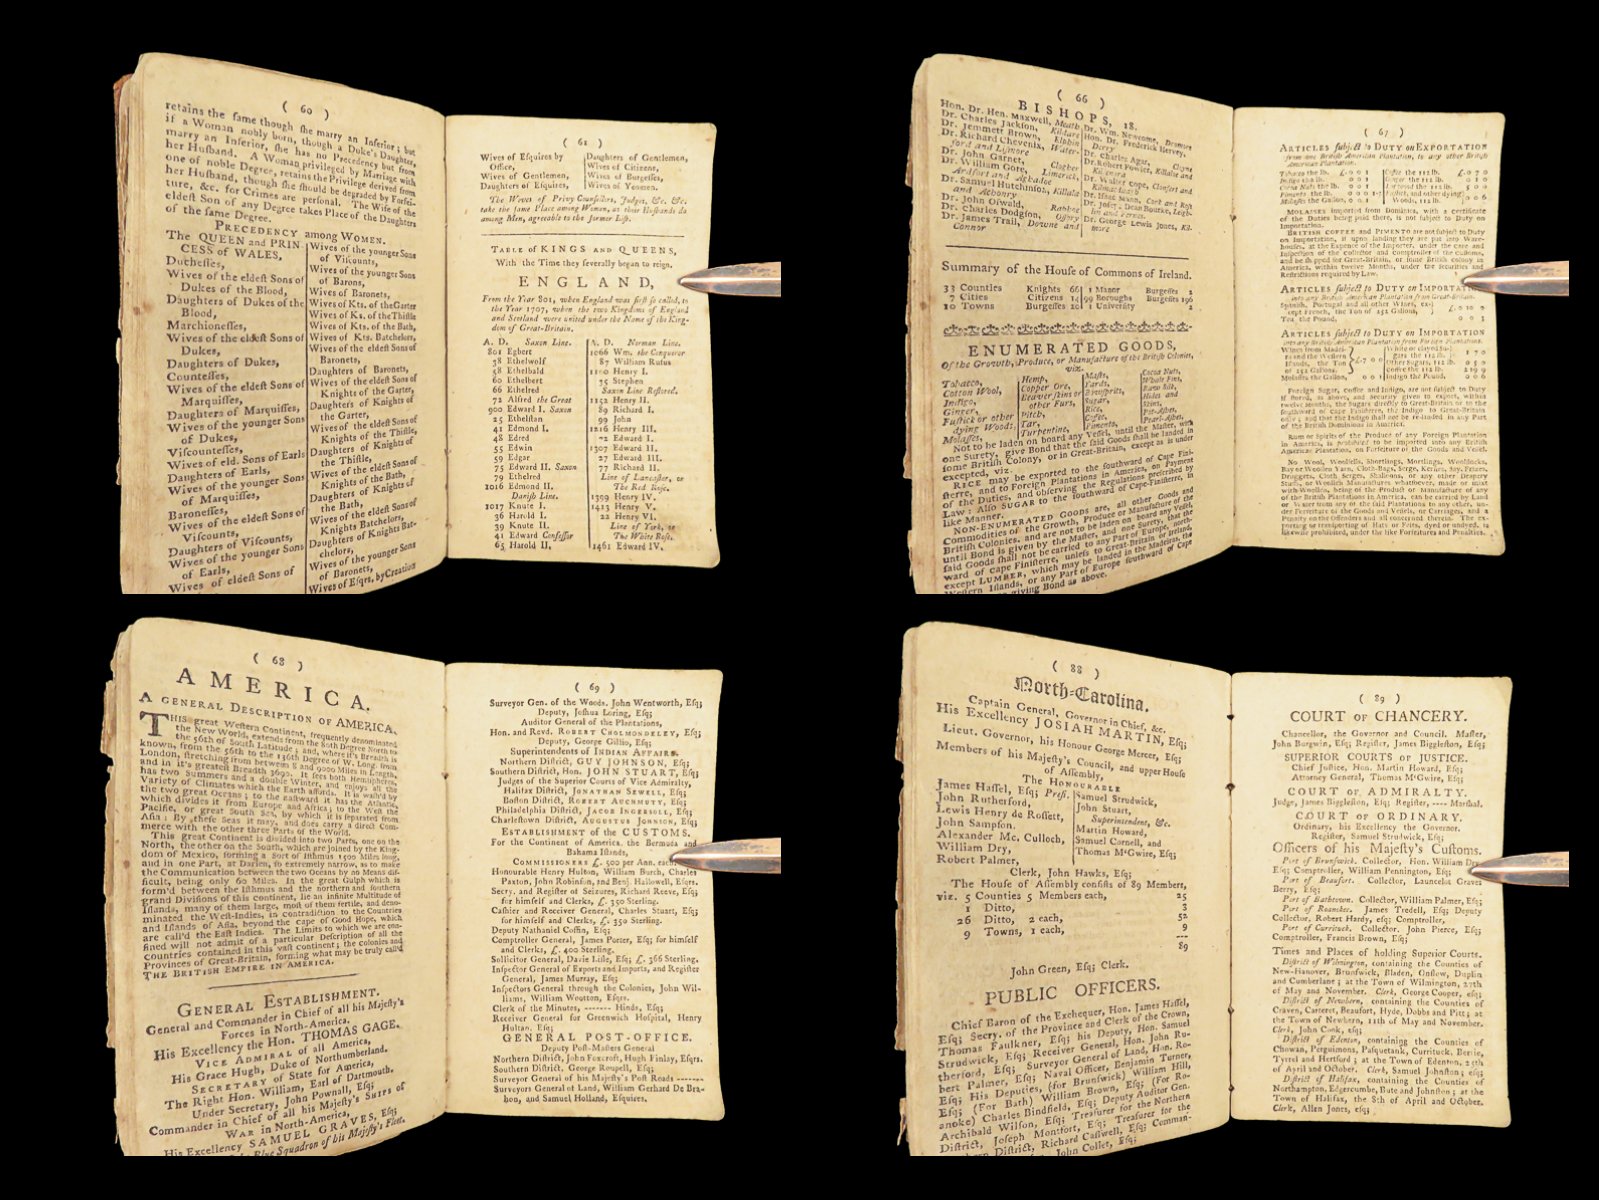 ( 60 )
retains the ſame though ſhe marry an Inferior; but
if a Woman nobly born, though a Duke's Daughter,
marry an Inferior, ſhe has no Precedency but from
her Huſband. A Woman privileged by Marriage with
one of noble Degree, retains the Privilege derived from
her Huſband, though ſhe ſhould be degraded by Forfei-
ture, &c. for Crimes are perſonal. The Wife of the
eldeſt Son of any Degree takes Place of the Daughters
of the ſame Degree.
PRECEDENCY among WOMEN.
The QUEEN and PRIN-
CESS of WALES,
Ducheſſes,
Wives of the eldeſt Sons of
Dukes of the Blood,
Daughters of Dukes of the
Blood,
Marchioneſſes,
Wives of the eldeſt Sons of
Dukes,
Daughters of Dukes,
Counteſſes,
Wives of the eldeſt Sons of
Marquiſſes,
Daughters of Marquiſſes,
Wives of the younger Sons
of Dukes,
Viſcounteſſes,
Wives of eld. Sons of Earls
Daughters of Earls,
Wives of the younger Sons
of Marquiſſes,
Baroneſſes,
Wives of the eldeſt Sons of
Viſcounts,
Daughters of Viſcounts,
Wives of the younger Sons
of Earls,
Wives of eldeſt Sons of
Wives of the younger Sons
of Viſcounts,
Wives of the younger Sons
of Barons,
Wives of Baronets,
Wives of Kts. of the Garter
Wives of Ks. of the Thiſtle
Wives of Kts. of the Bath,
Wives of Kts. Batchelors,
Wives of the eldeſt Sons of
Baronets,
Daughters of Baronets,
Wives of the eldeſt Sons of
Knights of the Garter,
Daughters of Knights of
the Garter,
Wives of the eldeſt Sons of
Knights of the Thiſtle,
Daughters of Knights of
the Thiſtle,
Wives of the eldeſt Sons of
Knights of the Bath,
Daughters of Knights of
the Bath,
Wives of the eldeſt Sons of
Knights Batchelors,
Daughters of Knights Bat-
chelors,
Wives of the younger Sons
of Baronets,
Wives of Eſqrs. by Creation
( 61 )
Wives of Eſquires by
Office,
Wives of Gentlemen,
Daughters of Eſquires,
Daughters of Gentlemen,
Wives of Citizens,
Wives of Burgeſſes,
Wives of Yeomen.
The Wives of Privy Counſellors, Judges, &c. &c.
take the ſame Place among Women, as their Huſbands do
among Men, agreeable to the former Liſt.
TABLE of KINGS AND QUEENS,
With the Time they ſeverally began to reign.
ENGLAND,
From the Year 801, when England was firſt ſo called, to
the Year 1707, when the two Kingdoms of England
and Scotland were united under the Name of the King-
dom of Great-Britain.
A. D. Saxon Line.
801 Egbert
38 Ethelwolf
58 Ethelbald
60 Ethelbert
66 Ethelred
72 Alfred the Great
900 Edward I. Saxon
25 Ethelſtan
41 Edmond I.
48 Edred
55 Edwin
59 Edgar
75 Edward II. Saxon
79 Ethelred
1016 Edmond II.
Daniſh Line.
1017 Knute I.
36 Harold I.
39 Knute II.
41 Edward Confeſſor
65 Harold II.
A. D. Norman Line.
1066 Wm. the Conqueror
87 William Rufus
1100 Henry I.
35 Stephen
Saxon Line Reſtored.
1152 Henry II.
89 Richard I.
99 John
1216 Henry III.
72 Edward I.
1307 Edward II.
27 Edward III.
77 Richard II.
Line of Lancaſter, or
The Red Roſe.
1399 Henry IV.
1413 Henry V.
22 Henry VI.
Line of York, or
The White Roſe.
1461 Edward IV.
( 66 )
BISHOPS, 18.
Hon. Dr. Hen. Maxwell, Meath
Dr. Charles Jackſon, Kildare
Dr. Jemmett Brown, Elphin
Dr. Richard Chevenix, Water-
ford and Liſmore
Dr. John Garnet, Clogher
Dr. William Gore, Limerick,
Ardfert and Aghadoe
Dr. Samuel Hutchinſon, Killala
and Achonry
Dr. John Oſwald, Raphoe
Dr. Charles Dodgſon, Oſſory
Dr. James Trail, Downe and
Connor
Dr. Wm. Newcome, Dromore
Hon. Dr. Frederick Hervey,
Derry
Dr. Charles Agar, Cloyne
Dr. Robert Fowler, Killaloe and
Kilfenora
Dr. Walter Cope, Clonfert and
Kilmacduagh
Dr. Iſaac Mann, Cork and Roſs
Dr. Joſeph Deane Bourke, Leigh-
lin and Fernes
Dr. George Lewis Jones, Kil-
more
Summary of the Houſe of Commons of Ireland.
33 Counties Knights 66
7 Cities Citizens 14
10 Towns Burgeſſes 20
1 Manor Burgeſſes 2
99 Boroughs Burgeſſes 196
1 University 2
ENUMERATED GOODS,
Of the Growth, Produce, or Manufacture of the Britiſh Colonies,
viz.
Tobacco,
Cotton Wool,
Indigo,
Ginger,
Fuſtick or other
dying Woods,
Molaſſes,
Hemp,
Copper Ore,
Beaver ſkins or
other Furs,
Pitch,
Tar,
Turpentine,
Maſts,
Yards,
Bowſprits,
Sugar,
Rice,
Coffee,
Pimento,
Cocoa Nuts,
Whale Fins,
Raw Silk,
Hides and
Skins,
Pot-Aſhes,
Pearl-Aſhes,
Not to be laden on board any Veſſel, until the Maſter, with
one Surety, give Bond that the ſaid Goods ſhall be landed in
ſome Britiſh Colony, or in Great-Britain, except as is under
excepted, viz.
RICE may be exported to the ſouthward of Cape Fini-
ſterre, and to Foreign Plantations in America, on Payment
of the Duties, and obſerving the Regulations preſcribed by
Law: Alſo SUGAR to the ſouthward of Cape-Finiſterre, in
like Manner.
NON-ENUMERATED GOODS are, all other Goods and
Commodities of the Growth, Produce or Manufacture of the
Britiſh Colonies, and are not to be laden on board any Veſſel,
until Bond is given by the Maſter, and one Surety, that the
ſaid Goods ſhall not be carried to any Part of Europe, north-
ward of Cape Finiſterre, unleſs to Great-Britain or Ireland,
except LUMBER, which may be landed in the Madeiras, the
Weſtern Iſlands, or any Part of Europe ſouthward of Cape
giving Bond as above.
( 67 )
ARTICLES ſubject to DUTY on EXPORTATION
from one Britiſh American Plantation, to any other Britiſh
American Plantation.
Tobacco the lb. £. 0 0 1
Indigo the lb. 0 0 1
Cocoa Nuts the lb. 0 0 1
Pimento the lb.
Molaſſes the Gallon, 0 0 1
MOLASSES imported from Dominica, with a certificate
of the Duties being paid there, is not ſubject to Duty on
Importation.
BRITISH COFFEE and PIMENTO are not ſubject to Duty
on Importation, if upon landing they are put into Ware-
houſes, at the Expence of the Importer, under the care and
Inſpection of the Collector and Comptroller of the Cuſtoms,
and be ſhipped for Great-Britain, or ſome Britiſh colony in
America, within twelve Months, under the Securities and
Reſtrictions required by Law.
ARTICLES ſubject to DUTY on IMPORTATION
into any Britiſh American Plantation from Great-Britain.
Spaniſh, Portugal and all other Wines, ex-
cept French, the Ton of 252 Gallons, £. 0 10 0
Tea, the Pound, 0 0 3
ARTICLES ſubject to DUTY on IMPORTATION
into any Britiſh American Plantation from Foreign Plantations.
Wines from Madei-
ra and the Weſtern
Iſlands, the Ton
of 252 Gallons.
Molaſſes the Gallon, 0 0 1
White or clayed Su-
gars the 112 lb. 1 7 0
Other Sugars, 112 lb. 0 5 0
Coffee the 112 lb. 2 19 9
Indigo the Pound, 0 0 6
Foreign Sugar, coffee and Indigo, are not ſubject to Duty
if ſtored, as above, and ſecurity given to export, within
twelve months, the Sugars directly to Great-Britain or to the
ſouthward of Cape Finiſterre, the Indigo to Great-Britain
only; and that the Indigo ſhall not be re-landed in any Part
of the Britiſh Dominions in America.
RUM or Spirits of the Produce of any Foreign Plantation
in America, is prohibited to be imported into any Britiſh
American Plantation, on Forfeiture of the Goods and Veſſel.
No Wool, Woolfells, Shortlings, Mortlings, Woolflocks,
Bay or Woolen Yarn, Cloth-Bags, Serge, Kerſies, Say, Frizes,
Druggets, Cloth Serges, Shalloons, or any other Drapery
Stuffs, or Woollen Manufactures whatſoever, made or mixt
with Woollen, being of the Product or Manufacture of any
of the Britiſh Plantations in America, can be carried by Land
or Water from any of the ſaid Plantations to any other, un-
der Forfeiture of the Goods and Veſſels, or Carriages, and a
Penalty on the Offenders and all concerned therein. The ex-
porting or tranſporting of Hats or Felts, dyed or undyed, is
likewiſe prohibited, under the like Forfeitures and Penalties.
( 68 )
AMERICA.
A GENERAL DESCRIPTION of AMERICA.
THIS great Weſtern Continent, frequently denominated
the New World, extends from the 80th Degree North to
the 56th of South Latitude; and, where it's Breadth is
known, from the 56th to the 136th Degree of W. Long. from
London, ſtretching from between 8 and 9000 Miles in Length,
and in it's greateſt Breadth 3690. It ſees both Hemiſpheres,
has two Summers and a double Winter, and enjoys all the
Variety of Climates which the Earth affords. It is waſh'd by
the two great Oceans; to the eaſtward it has the Atlantic,
which divides it from Europe and Africa; to the Weſt the
Pacific, or great South Sea, by which it is ſeparated from
Aſia; By theſe Seas it may, and does carry a direct Com-
merce with the other three Parts of the World.
This great Continent is divided into two Parts, one on the
North, the other on the South, which are joined by the King-
dom of Mexico, forming a Sort of Iſthmus 1500 Miles long,
and in one Part, at Darien, ſo extremely narrow, as to make
the Communication between the two Oceans by no Means dif-
ficult, being only 60 Miles. In the great Gulph which is
form'd between the Iſthmus and the northern and ſouthern
grand Diviſions of this continent, lie an infinite Multitude of
Iſlands, many of them large, moſt of them fertile, and deno-
minated the Weſt-Indies, in contradiction to the Countries
and Iſlands of Aſia, beyond the cape of Good Hope, which
are call'd the Eaſt Indies. The Limits to which we are con-
fined will not admit of a particular Deſcription of all the
countries contained in this vaſt continent; the colonies and
Provinces of Great-Britain, forming what may be truly call'd
THE BRITISH EMPIRE IN AMERICA.
GENERAL ESTABLISHMENT.
General and Commander in Chief of all his Majeſty's
Forces in North-America.
His Excellency the Hon. THOMAS GAGE.
VICE ADMIRAL of all America,
His Grace Hugh, Duke of Northumberland.
SECRETARY of State for America,
The Right Hon. William, Earl of Dartmouth.
Under Secretary, John Pownall, Eſq;
Commander in Chief of all his Majeſty's SHIPS of
WAR in North-America,
His Excellency SAMUEL GRAVES, Eſq;
Blue Squadron of his Majeſty's Fleet.
( 69 )
Surveyor Gen. of the Woods. John Wentworth, Eſq;
Deputy, Joſhua Loring, Eſq;
Auditor General of the Plantations,
Hon. and Revd. ROBERT CHOLMONDELEY, Eſq;
Deputy, George Gillio, Eſq;
Superintendents of INDIAN AFFAIRS.
Northern Diſtrict, GUY JOHNSON, Eſq;
Southern Diſtrict, Hon. JOHN STUART, Eſq;
Judges of the Superior Courts of Vice Admiralty,
Halifax Diſtrict, JONATHAN SEWELL, Eſq;
Boſton Diſtrict, ROBERT AUCHMUTY, Eſq;
Philadelphia Diſtrict, JACOB INGERSOLL, Eſq;
Charleſtown Diſtrict, AUGUSTUS JOHNSON, Eſq;
ESTABLISHMENT of the CUSTOMS.
For the Continent of America. the Bermuda and
Bahama Iſlands,
COMMISSIONERS £. 500 per Ann. each
Honourable Henry Hulton, William Burch, Charles
Paxton, John Robinſon, and Benj. Hallowell, Eſqrs.
Secry. and Regiſter of Seizures, Richard Reeve, Eſq;
for himſelf and Clerks, £. 350 Sterling.
Caſhier and Receiver General, Charles Stuart, Eſq;
for himſelf and Clerks, £. 350 Sterling.
Deputy Nathaniel Coffin, Eſq;
Comptroller General, James Porter, Eſq; for himſelf
and Clerks, £. 400 Sterling.
Sollicitor General, Davie Liſle, Eſq; £. 366 Sterling.
Inſpector General of Exports and Imports, and Regiſter
General, James Murray, Eſq;
Inſpectors General through the Colonies, John Wil-
liams, William Wootton, Eſqrs.
Clerk of the Minutes, ------- Hinds, Eſq;
Receiver General for Greenwich Hoſpital, Henry
Hultan, Eſq;
GENERAL POST-OFFICE.
Deputy Poſt-Maſters General
Northern Diſtrict, John Foxcroft, Hugh Finlay, Eſqrs.
Southern Diſtrict, George Roupell, Eſq;
Surveyor General of his Majeſty's Poſt Roads -------
Surveyors General of Land, William Gerhard De Bra-
hon, and Samuel Holland, Eſquires.
( 88 )
North-Carolina.
Captain General, Governor in Chief, &c.
His Excellency JOSIAH MARTIN, Eſq;
Lieut. Governor, his Honour George Mercer, Eſq;
Members of his Majeſty's Council, and upper Houſe
of Aſſembly,
The HONOURABLE
James Haſſel, Eſq; Preſ.
John Rutherford,
Lewis Henry de Roſſett,
John Sampſon.
Alexander Mc. Culloch,
William Dry,
Robert Palmer,
Samuel Strudwick,
John Stuart,
Superintendent, &c.
Martin Howard,
Samuel Cornell, and
Thomas M'Gwire, Eſq;
Clerk, John Hawks, Eſq;
The Houſe of Aſſembly conſiſts of 89 Members,
viz. 5 Counties 5 Members each, 25
1 Ditto, 3
26 Ditto, 2 each, 52
9 Towns, 1 each, 9
89
John Green, Eſq; Clerk.
PUBLIC OFFICERS.
Chief Baron of the Exchequer, Hon. James Haſſel,
Eſq; Secry. of the Province and Clerk of the Crown,
Thomas Faulkner, Eſq; his Deputy, Hon. Samuel
Strudwick, Eſq; Receiver General, Hon. John Ru-
therford, Eſq; Surveyor General of Land, Hon. Ro-
bert Palmer, Eſq; Naval Officer, Benjamin Turner,
Eſq; His Deputies, (for Brunſwick) William Hill,
Eſq; (For Bath) William Brown, Eſq; (For Ro-
anoke) Charles Bindfield, Eſq; Deputy Auditor Gen.
Archibald Wilſon, Eſq; Treaſurer for the Northern
Diſtrict, Joſeph Montfort, Eſq; Treaſurer for the
Diſtrict, Richard Caſwell, Eſq; Comman-
John Collet, Eſq;
( 89 )
COURT OF CHANCERY.
Chancellor, the Governor and Council. Maſter,
John Burgwin, Eſq; Regiſter, James Biggleſton, Eſq;
SUPERIOR COURTS OF JUSTICE.
Chief Juſtice, Hon. Martin Howard, Eſq;
Attorney General, Thomas M'Gwire, Eſq;
COURT OF ADMIRALTY.
Judge, James Biggleſton, Eſq; Regiſter, ---- Marſhal.
COURT OF ORDINARY.
Ordinary, his Excellency the Governor.
Regiſter, Samuel Strudwick, Eſq;
Officers of his Majeſty's Cuſtoms.
Port of Brunſwick. Collector, Hon. William Dry,
Eſq; Comptroller, William Pennington, Eſq;
Port of Beaufort. Collector, Launcelot Graves
Berry, Eſq;
Port of Bathtown. Collector, William Palmer, Eſq;
Port of Roanoke. James Tredell, Eſq; Deputy
Collector, Robert Hardy, Eſq; Comptroller,
Port of Currituck. Collector. John Pierce, Eſq;
Comptroller, Francis Brown, Eſq;
Times and Places of holding Superior Courts.
Diſtrict of Wilmington, containing the Counties of
New-Hanover, Brunſwick, Bladen, Onſlow, Duplin
and Cumberland; at the Town of Wilmington, 27th
of May and November. Clerk, George Cooper, eſq;
Diſtrict of Newbern, containing the Counties of
Craven, Carteret, Beaufort, Hyde, Dobbs and Pitt; at
the Town of Newbern, 11th of May and November.
Clerk, John Cook, eſq;
Diſtrict of Edenton, containing the Counties of
Chowan, Perquimons, Paſquetank, Currituck, Bertie,
Tyrrel and Hertford; at the Town of Edenton, 25th
of April and October. Clerk, Samuel Johnſton; eſq;
Diſtrict of Halifax, containing the Counties of
Northampton, Edgercumbe, Bute and Johnſton; at the
Town of Halifax, the 8th of April and October.
Clerk, Allen Jones, eſq;